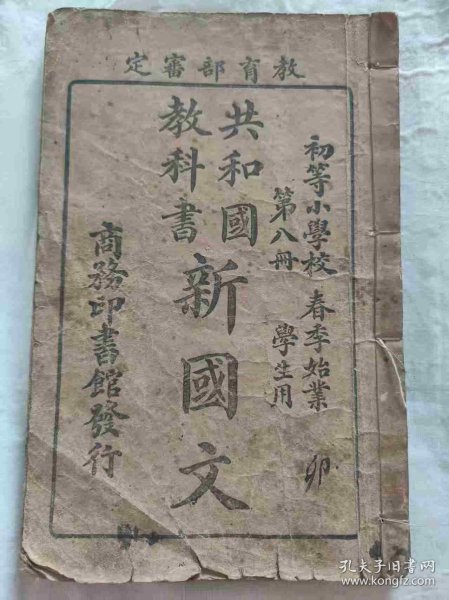 教育部審定
初等小學校 春季始業
第八冊 學生用
共和國
教科書
新國文
商務印書館發行
卯
孔夫子旧书网
www.kongfz.com